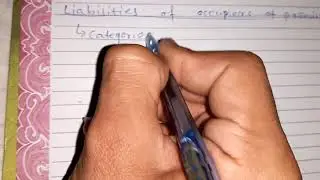 Liabilities of occupiers of premi
↳ Categorie